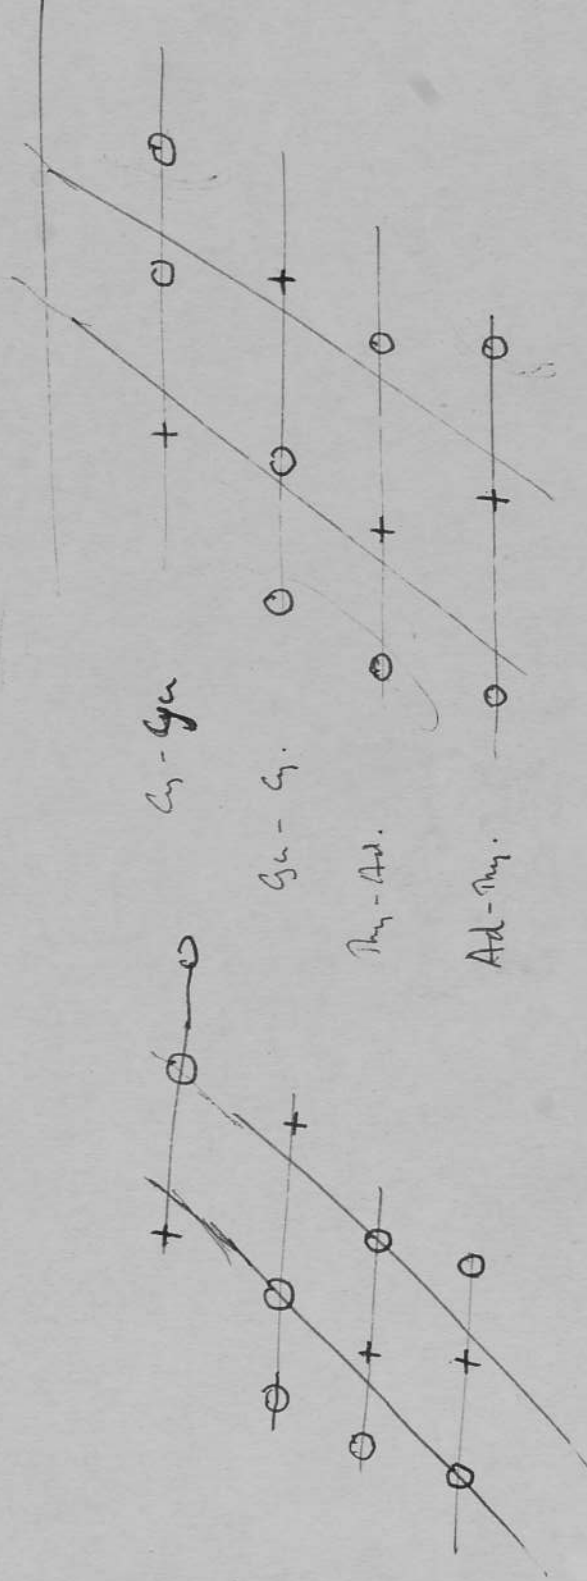 Cy - Gu
Gu - Cy.
Thy - Ad.
Ad - Thy.